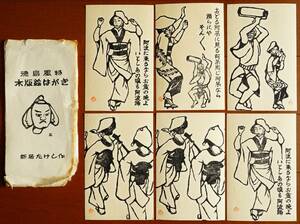 徳島風物
木版絵はがき
新居たけし作
阿波に来るならお盆の晩よ
いとしあの娘も阿波踊
おどる阿呆に見る阿呆同じ阿呆なら
踊らにゃ
そん
阿波に来るならお盆の晩よ
いとしあの娘も阿波踊